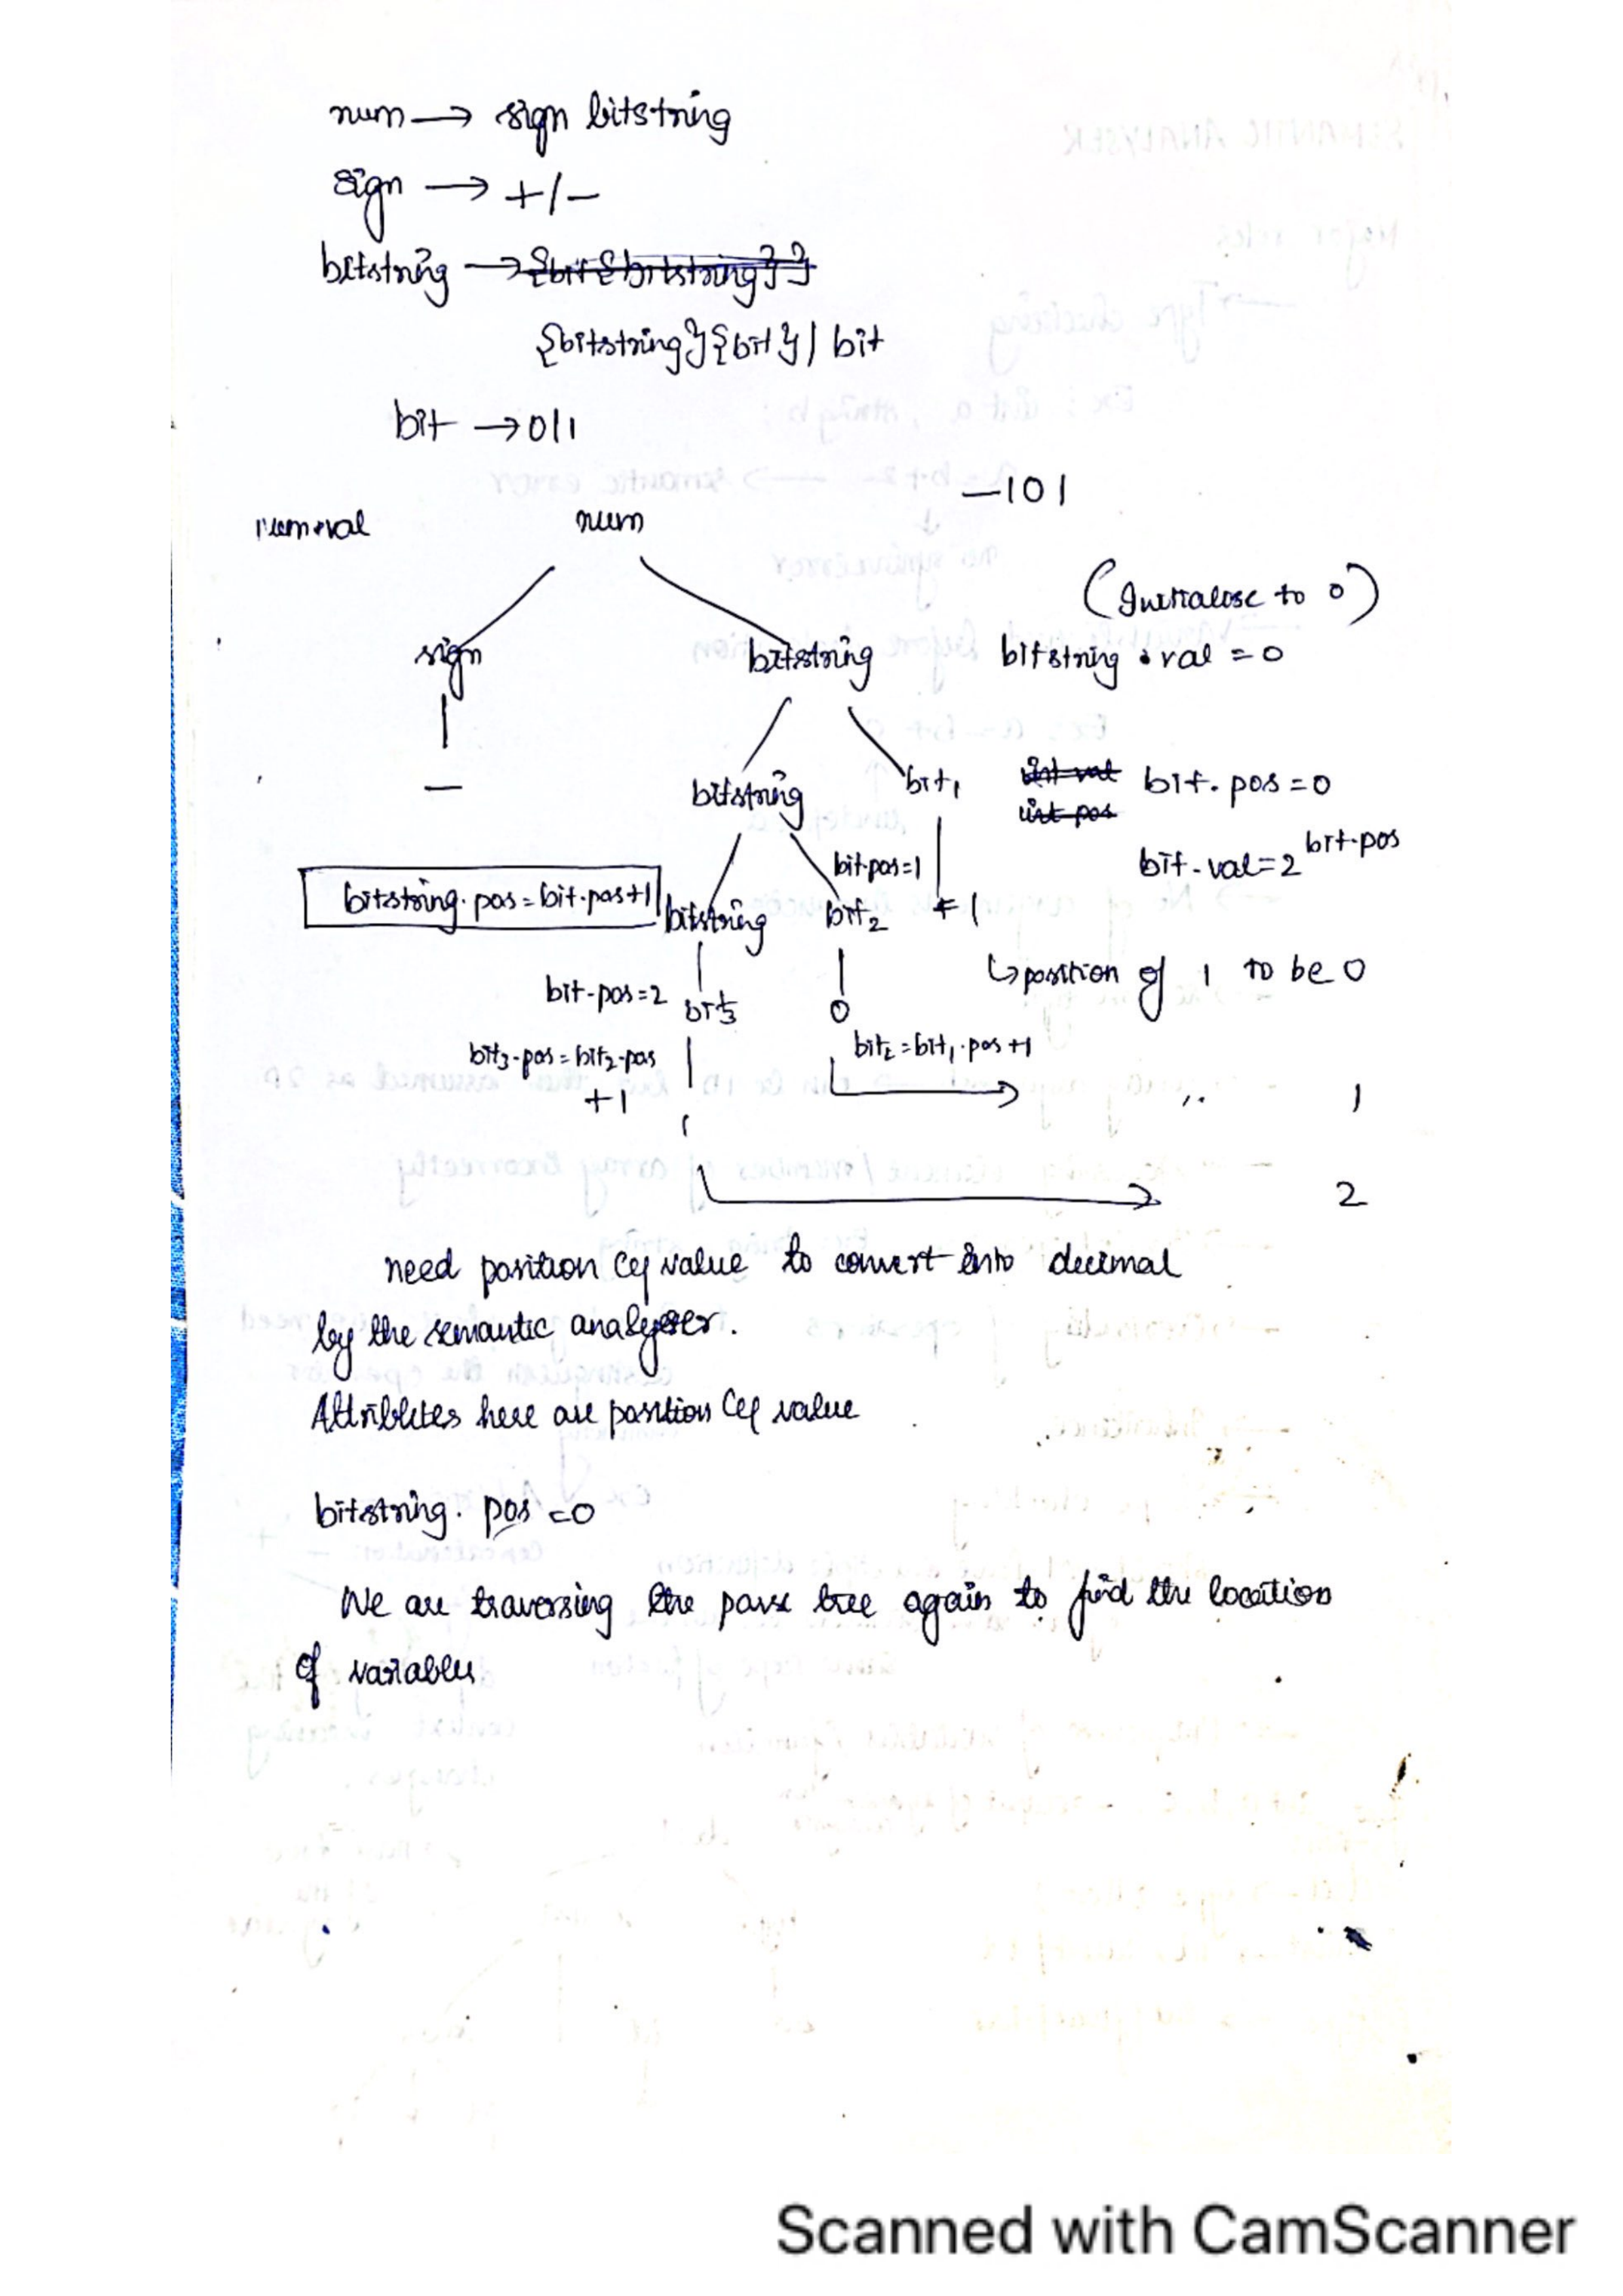 num → sign bitstring
sign → +/-
bitstring → {bit{bitstring}}
{bitstring}{bit}| bit
bit → 0|1
-101
num
(Initialise to 0)
sign bitstring bitstring . val = 0
-
bitstring bit1 int val bit. pos = 0
int pos
bit-pos=1 bit-val=2^bit-pos
bitstring. pos = bit.pos+1 bitstring bit2 1
↳ position of 1 to be 0
bit-pos=2 bit3 0
bit3-pos = bit2-pos bit2 = bit1.pos +1
+1 ,, 1
1
2
need position & value to convert into decimal
by the semantic analyser.
Attributes here are position & value
bitstring. pos = 0
We are traversing the parse tree again to find the location
of variables
Scanned with CamScanner